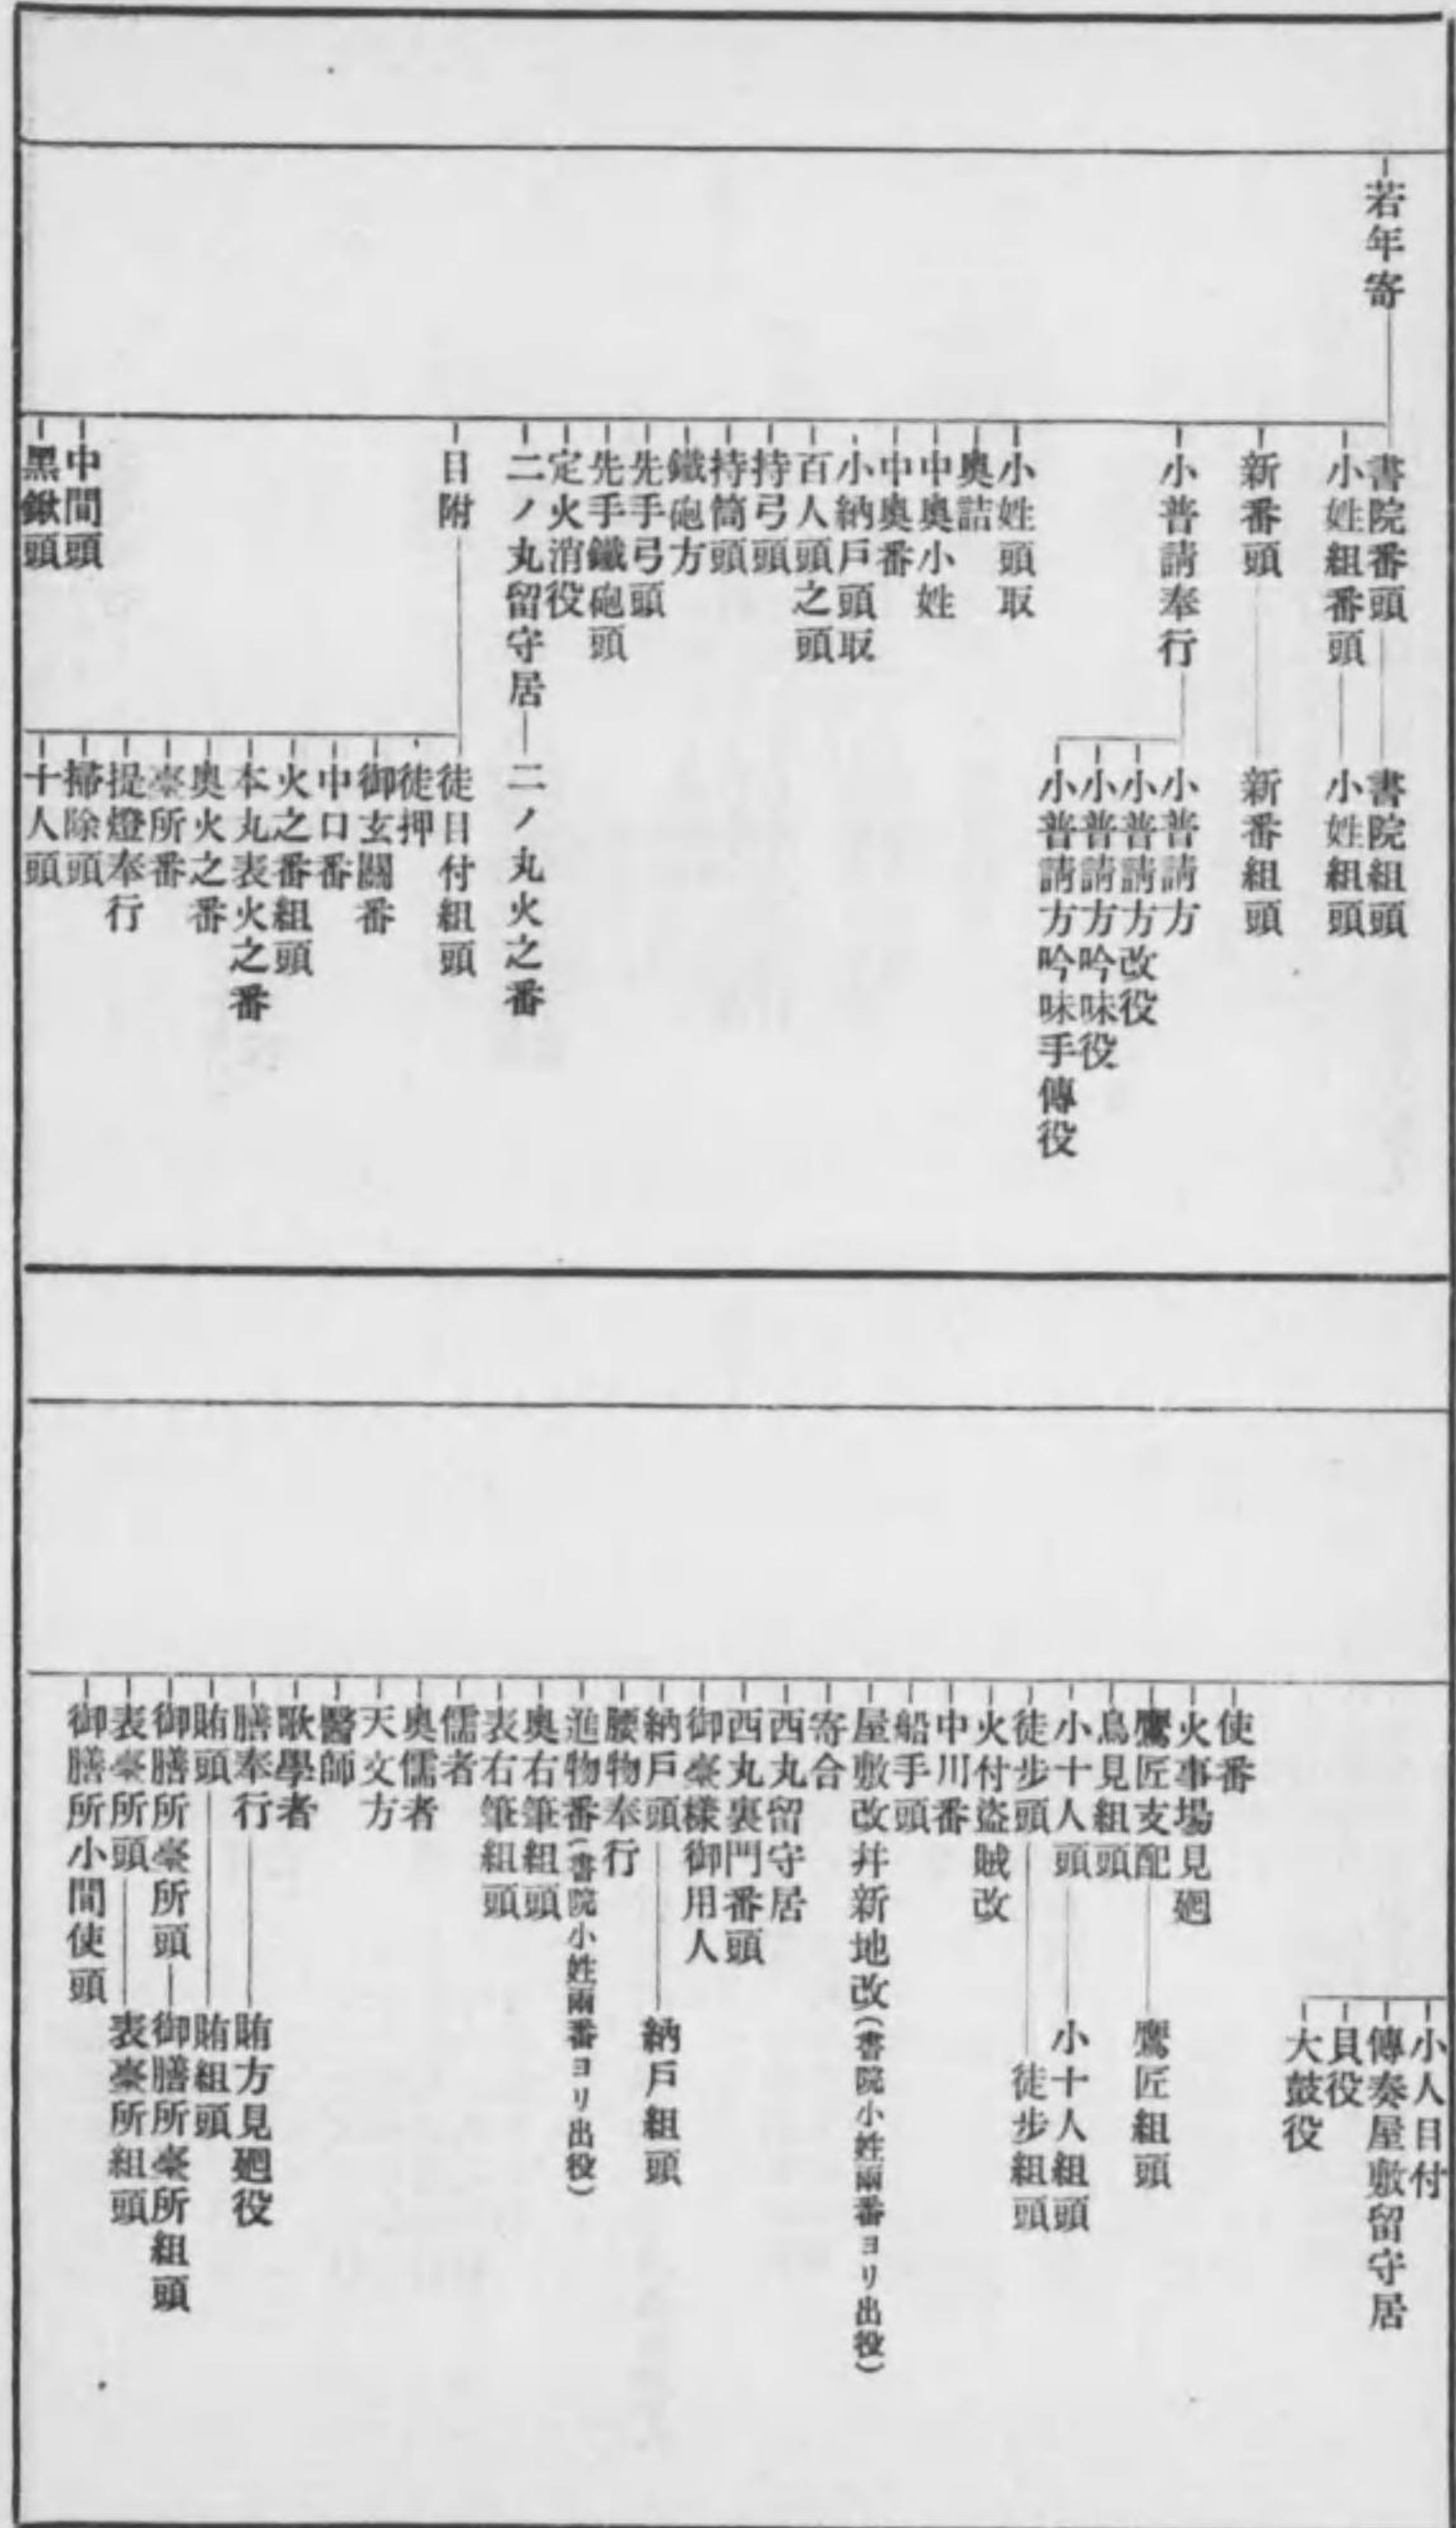 若年寄
書院番頭
書院組頭
小姓組番頭
小姓組頭
新番頭
新番組頭
小普請奉行
小普請方
小普請方改役
小普請方吟味役
小普請方吟味手傳役
小姓頭取
奧詰
中奧小姓
中奧番
小納戶頭取
百人頭之頭
持弓頭
持筒頭
鐵砲方
先手弓頭
先手鐵砲頭
定火消役
二ノ丸留守居
二ノ丸火之番
目附
徒目付組頭
徒押
御玄關番
中口番
火之番組頭
本丸表火之番
奧火之番
臺所番
提燈奉行
掃除頭
十人頭
中間頭
黑鍬頭
小人目付
傳奏屋敷留守居
貝役
大鼓役
使番
火事場見廻
鷹匠支配
鷹匠組頭
鳥見組頭
小十人頭
小十人組頭
徒步頭
徒步組頭
火付盜賊改
中川番
船手頭
屋敷改幷新地改(書院小姓兩番ヨリ出役)
寄合
西丸留守居
西丸裏門番頭
御臺樣御用人
納戶頭
納戶組頭
腰物奉行
進物番(書院小姓兩番ヨリ出役)
奧右筆組頭
表右筆組頭
儒者
奧儒者
天文方
醫師
歌學者
膳奉行
賄方見廻役
賄頭
賄組頭
御膳所臺所頭
御膳所臺所組頭
表臺所頭
表臺所組頭
御膳所小間使頭